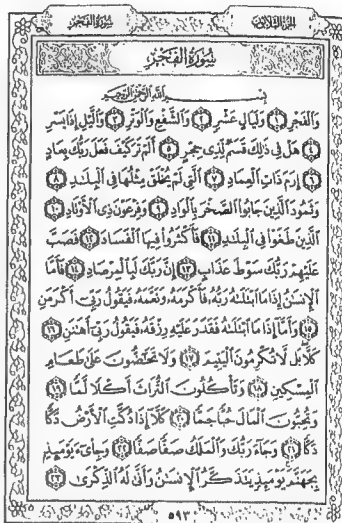 الجزء الثلاثون سورة الفجر
سورة الفجر
بسم الله الرحمن الرحيم
وَالْفَجْرِ ١ وَلَيَالٍ عَشْرٍ ٢ وَالشَّفْعِ وَالْوَتْرِ ٣ وَالَّيْلِ إِذَا يَسْرِ
٤ هَلْ فِي ذَٰلِكَ قَسَمٌ لِّذِي حِجْرٍ ٥ أَلَمْ تَرَ كَيْفَ فَعَلَ رَبُّكَ بِعَادٍ
٦ إِرَمَ ذَاتِ الْعِمَادِ ٧ الَّتِي لَمْ يُخْلَقْ مِثْلُهَا فِي الْبِلَٰدِ ٨
وَثَمُودَ الَّذِينَ جَابُوا الصَّخْرَ بِالْوَادِ ٩ وَفِرْعَوْنَ ذِي الْأَوْتَادِ ١٠
الَّذِينَ طَغَوْا فِي الْبِلَٰدِ ١١ فَأَكْثَرُوا فِيهَا الْفَسَادَ ١٢ فَصَبَّ
عَلَيْهِمْ رَبُّكَ سَوْطَ عَذَابٍ ١٣ إِنَّ رَبَّكَ لَبِالْمِرْصَادِ ١٤ فَأَمَّا
الْإِنسَٰنُ إِذَا مَا ابْتَلَىٰهُ رَبُّهُ فَأَكْرَمَهُ وَنَعَّمَهُ فَيَقُولُ رَبِّي أَكْرَمَنِ
١٥ وَأَمَّا إِذَا مَا ابْتَلَىٰهُ فَقَدَرَ عَلَيْهِ رِزْقَهُ فَيَقُولُ رَبِّي أَهَٰنَنِ ١٦
كَلَّا بَل لَّا تُكْرِمُونَ الْيَتِيمَ ١٧ وَلَا تَحَٰضُّونَ عَلَىٰ طَعَامِ
الْمِسْكِينِ ١٨ وَتَأْكُلُونَ التُّرَاثَ أَكْلًا لَّمًّا ١٩
وَتُحِبُّونَ الْمَالَ حُبًّا جَمًّا ٢٠ كَلَّا إِذَا دُكَّتِ الْأَرْضُ دَكًّا
دَكًّا ٢١ وَجَاءَ رَبُّكَ وَالْمَلَكُ صَفًّا صَفًّا ٢٢ وَجِايءَ يَوْمَئِذٍ
بِجَهَنَّمَ يَوْمَئِذٍ يَتَذَكَّرُ الْإِنسَٰنُ وَأَنَّىٰ لَهُ الذِّكْرَىٰ ٢٣
٥٩٣